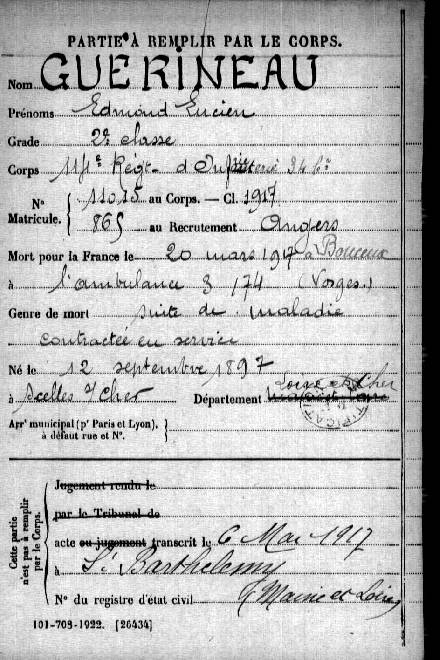 PARTIE À REMPLIR PAR LE CORPS.
Nom GUERINEAU
Prénoms Edmond Lucien
Grade 2e classe
Corps 114e Régt d'Infanterie 34 Cie
N° Matricule. { 11015 au Corps. — Cl. 1917
865 au Recrutement Angers
Mort pour la France le 20 mars 1917 à
à l'ambulance 3/74 (Vosges)
Genre de mort suite de maladie
contractée en service
Né le 12 septembre 1897
à Scelles s/Cher Département Loir et Cher
Arrt municipal (pr Paris et Lyon),
à défaut rue et N°.
Cette partie n'est pas à remplir par le Corps.
Jugement rendu le
par le Tribunal de
acte ou jugement transcrit le 6 Mai 1917
à St Barthelemy
N° du registre d'état civil (Maine et Loire)
101-708-1922. [26434]